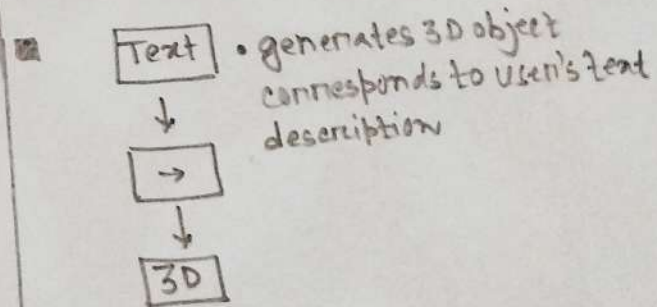 Text
• generates 3D object
corresponds to user's text
description
↓
→
↓
3D